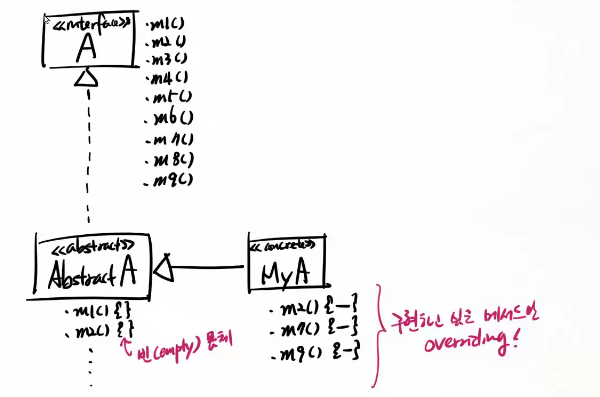 <<interface>>
A
·m1()
·m2()
·m3()
·m4()
·m5()
·m6()
·m7()
·m8()
·m9()
<<abstract>>
AbstractA
·m1() {}
·m2() {}
빈(empty) 몸체
<<concrete>>
MyA
·m2() {—}
·m7() {—}
·m9() {—}
구현하고 싶은 메서드만
overriding!